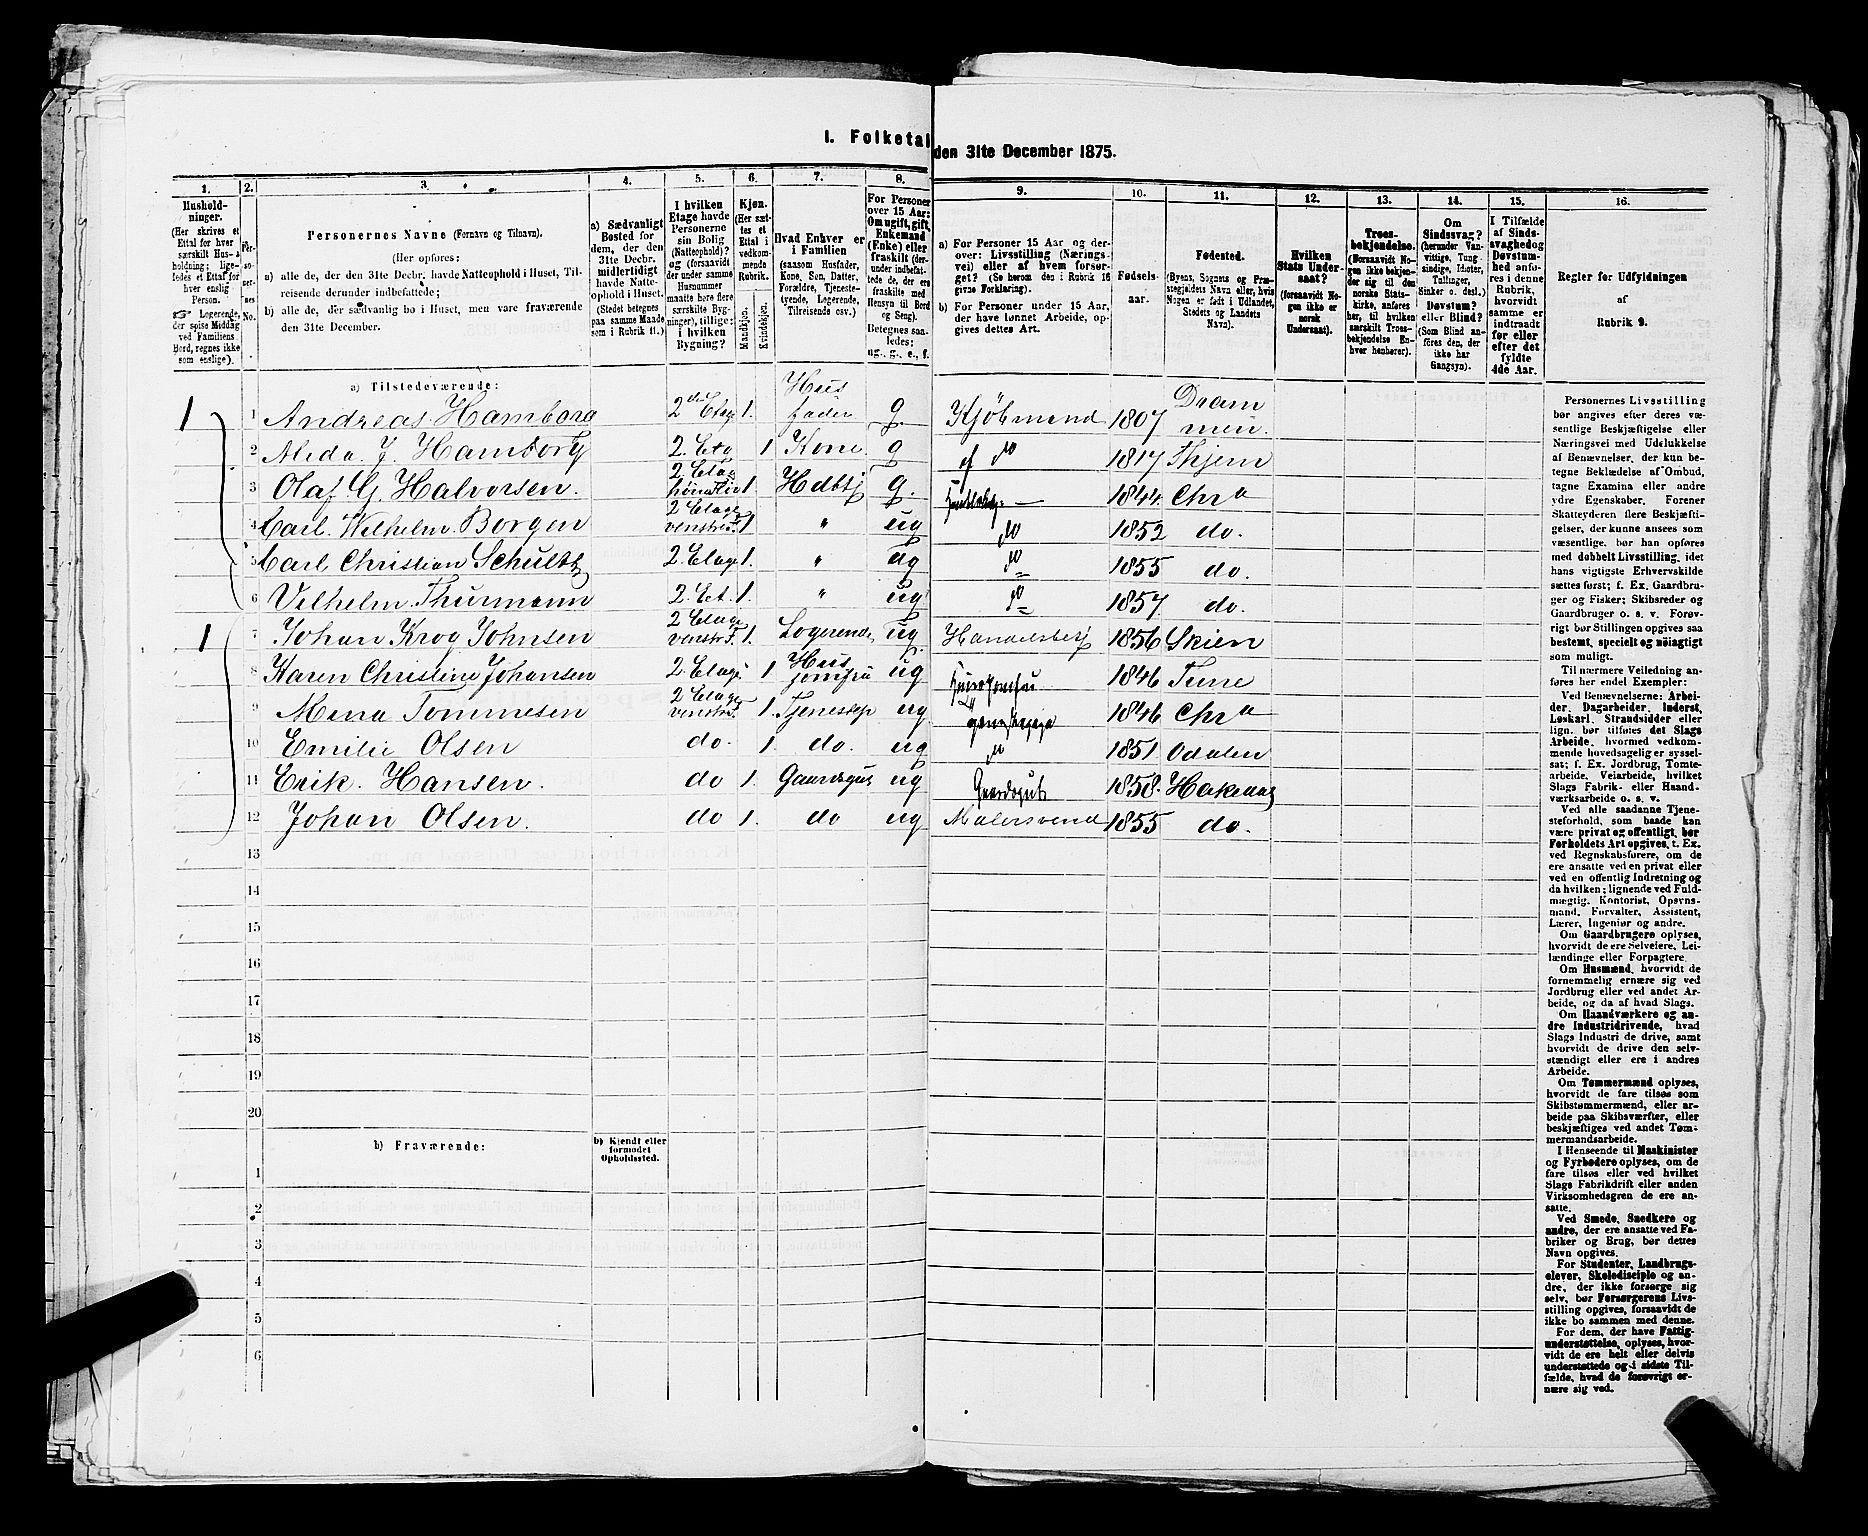 I. Folketal den 31te December 1875.
1. 2. 3. 4. 5. 6. 7. 8. 9. 10. 11. 12. 13. 14. 15. 16.
Hushold-
ninger.
(Her skrives et
Ettal for hver
særskilt Hus-
holdning; lige-
ledes et Ettal for
hver enslig
Person.
☞ Logerende,
der spise Middag
ved Familiens
Bord, regnes ikke
som enslige).
Per-
so-
ner-
nes
No.
Personernes Navne (Fornavn og Tilnavn).
(Her opføres:
a) alle de, der den 31te Decbr. havde Natteophold i Huset, Til-
reisende derunder indbefattede;
b) alle de, der sædvanlig bo i Huset, men vare fraværende
den 31te December.
a) Sædvanligt
Bosted for
dem, der den
31te Decbr.
midlertidigt
havde Natte-
ophold i Huset.
(Stedet betegnes
paa samme Maade
som i Rubrik 11.)
I hvilken
Etage havde
Personerne
sin Bolig
(Natteophold)?
og (forsaavidt
der under samme
Husnummer
maatte høre flere
særskilte Byg-
ninger), tillige:
i hvilken
Bygning?
Kjøn.
(Her sæt-
tes et
Ettal i
vedkom-
mende
Rubrik.
Mandkjøn.
Kvindekjøn.
Hvad Enhver er
i Familien
(saasom Husfader,
Kone, Søn, Datter,
Forældre, Tjeneste-
tyende, Logerende,
Tilreisende osv.)
For Personer
over 15 Aar:
Om ugift, gift,
Enkemand
(Enke) eller
fraskilt (der-
under indbefat-
tede de, der ere
fraskilte med
Hensyn til Bord
og Seng).
Betegnes saa-
ledes:
ug., g., e., f.
a) For Personer 15 Aar og der-
over: Livsstilling (Nærings-
vei) eller af hvem forsør-
get? (Se herom den i Rubrik 16
givne Forklaring).
b) For Personer under 15 Aar,
der have lønnet Arbeide, op-
gives dettes Art.
Fødsels-
aar.
Fødested.
(Byens, Sognets og Præ-
stegjeldets Navn eller, hvis
Nogen er født i Udlandet,
Stedets og Landets
Navn).
Hvilken
Stats Under-
saat?
(forsaavidt No-
gen ikke er
norsk
Undersaat).
Troes-
bekjendelse.
(Forsaavidt No-
gen ikke bekjen-
der sig til den
norske Stats-
kirke, anføres
her, til hvilken
særskilt Troes-
bekjendelse En-
hver henhører).
Om
Sindssvag?
(herunder Van-
vittige, Tung-
sindige, Idioter,
Tullinger,
Sinker o. desl.)
Døvstum?
eller Blind?
(Som Blind an-
føres den, der
ikke har
Gangsyn).
I Tilfælde
af Sinds-
svaghed og
Døvstum-
hed anfø-
res i denne
Rubrik,
hvorvidt
samme er
indtraadt
før eller
efter det
fyldte
4de Aar.
Regler for Udfyldningen
af
Rubrik 9.
a) Tilstedeværende:
1 1 Andreas Hamborg 2den Etage 1. Husfader g. Kjøbmand 1807 Drammen.
2 Alida J. Hamborg 2. Eta 1 Kone g af do 1817 Skjern
3 Olaf G. Halvorsen. 2 Etag 1 Hdbtj g. 1844. Chra
4 Carl Wilhelm Borgen 2 Etage venstre F. 1 " ug do 1852 do.
5 Carl Christian Schultz 2. Etage 1. " ug do 1855 do.
6 Vilhelm Thurmann 2. Et. 1. " ug do 1857. do.
1 7 Johan Krog Johnsen 2 Etage venstr F. 1. Logerende ug. Handelsbetj 1856 Skien
8 Karen Christine Johansen 2 Etage 1 Husjomfru ug Huusjomfru 1846 Tune
9 Mina Tommesen 2 Etage venstr F. 1. Tjenestep ug. 1846 Chra
10 Emilie Olsen do. 1. do. ug do 1851 Odalen
11 Erik. Hansen. do 1. Gaardsgut ug Gaardsgut 1858. Hakedal
12 Johan Olsen. do 1. do ug Malersvend 1855 do.
13
14
15
16
17
18
19
20
b) Fraværende:
b) Kjendt eller
formodet
Opholdssted.
1
2
3
4
5
6
Personernes Livsstilling
bør angives efter deres væ-
sentlige Beskjæftigelse eller
Næringsvei med Udelukkelse
af Benævnelser, der kun be-
tegne Beklædelse af Ombud,
tagne Examina eller andre
ydre Egenskaber. Forener
Skatteyderen flere Beskjæfti-
gelser, der kunne ansees som
væsentlige, bør han opføres
med dobbelt Livsstilling, idet
hans vigtigste Erhvervskilde
sættes først; f. Ex. Gaardbru-
ger og Fisker; Skibsreder og
Gaardbruger o. s. v. Forøv-
rigt bør Stillingen opgives saa
bestemt, specielt og nøiagtigt
som muligt.
Til nærmere Veiledning an-
føres her endel Exempler:
Ved Benævnelserne: Arbei-
der, Dagarbeider, Inderst,
Løskarl, Strandsidder eller
lign. bør tilføies det Slags
Arbeide, hvormed vedkom-
mende hovedsagelig er syssel-
sat; f. Ex. Jordbrug, Tomte-
arbeide, Veiarbeide, hvilket
Slags Fabrik- eller Haand-
værksarbeide o. s. v.
Ved alle saadanne Tjene-
steforhold, som baade kan
være privat og offentligt, bør
Forholdets Art opgives, t. Ex.
ved Regnskabsførere, om de
ere ansatte ved en privat eller
ved en offentlig Indretning og
da hvilken; lignende ved Fuld-
mægtig, Kontorist, Opsyns-
mand, Forvalter, Assistent,
Lærer, Ingeniør og andre.
Om Gaardbrugere oplyses,
hvorvidt de ere Selveiere, Lei-
lændinge eller Forpagtere.
Om Husmænd, hvorvidt de
fornemmelig ernære sig ved
Jordbrug eller ved andet Ar-
beide, og da af hvad Slags.
Om Haandværkere og an-
dre Industridrivende, hvad
Slags Industri de drive, samt
hvorvidt de drive den selv-
stændigt eller ere i andres
Arbeide.
Om Tømmermænd oplyses,
hvorvidt de fare tilsøs som
Skibstømmermænd, eller ar-
beide paa Skibsværfter, eller
beskjæftiges ved andet Tøm-
mermandsarbeide.
I Henseende til Maskinister
og Fyrbødere oplyses, om de
fare tilsøs eller ved hvilket
Slags Fabrikdrift eller anden
Virksomhedsgren de ere an-
satte.
Ved Smede, Snedkere og
andre, der ere ansatte ved Fa-
briker og Brug, bør dettes
Navn opgives.
For Studenter, Landbrugs-
elever, Skoledisciple og an-
dre, der ikke forsørge sig
selv, bør Forsørgerens Livs-
stilling opgives, forsaavidt de
ikke bo sammen med denne.
For dem, der have Fattig-
understøttelse, oplyses, hvor-
vidt de ere helt eller delvis
understøttede og i sidste Til-
fælde, hvad de forøvrigt er-
nære sig ved.